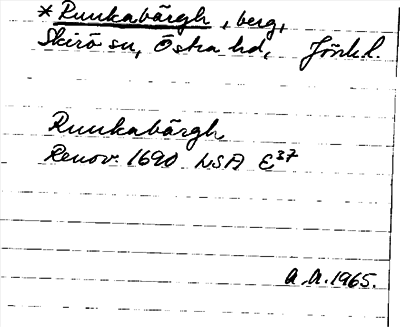 * Runkabärgh, berg,
Skirö sn, Östra hd, Jönk.l.
Runkabärgh
Renov. 1690 LSA E37
A.A. 1965.